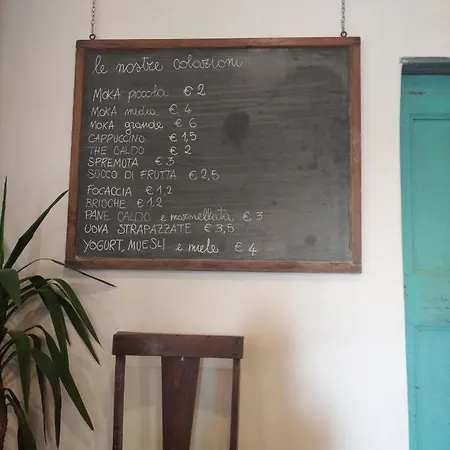 le nostre colazioni
MOKA piccola € 2
MOKA media € 4
MOKA grande € 6
CAPPUCCINO € 1,5
THE CALDO € 2
SPREMUTA € 3
SUCCO DI FRUTTA € 2,5
FOCACCIA € 1,2
BRIOCHE € 1.2
PANE CALDO e marmellata € 3
UOVA STRAPAZZATE € 3,5
YOGURT, MUESLI e miele € 4